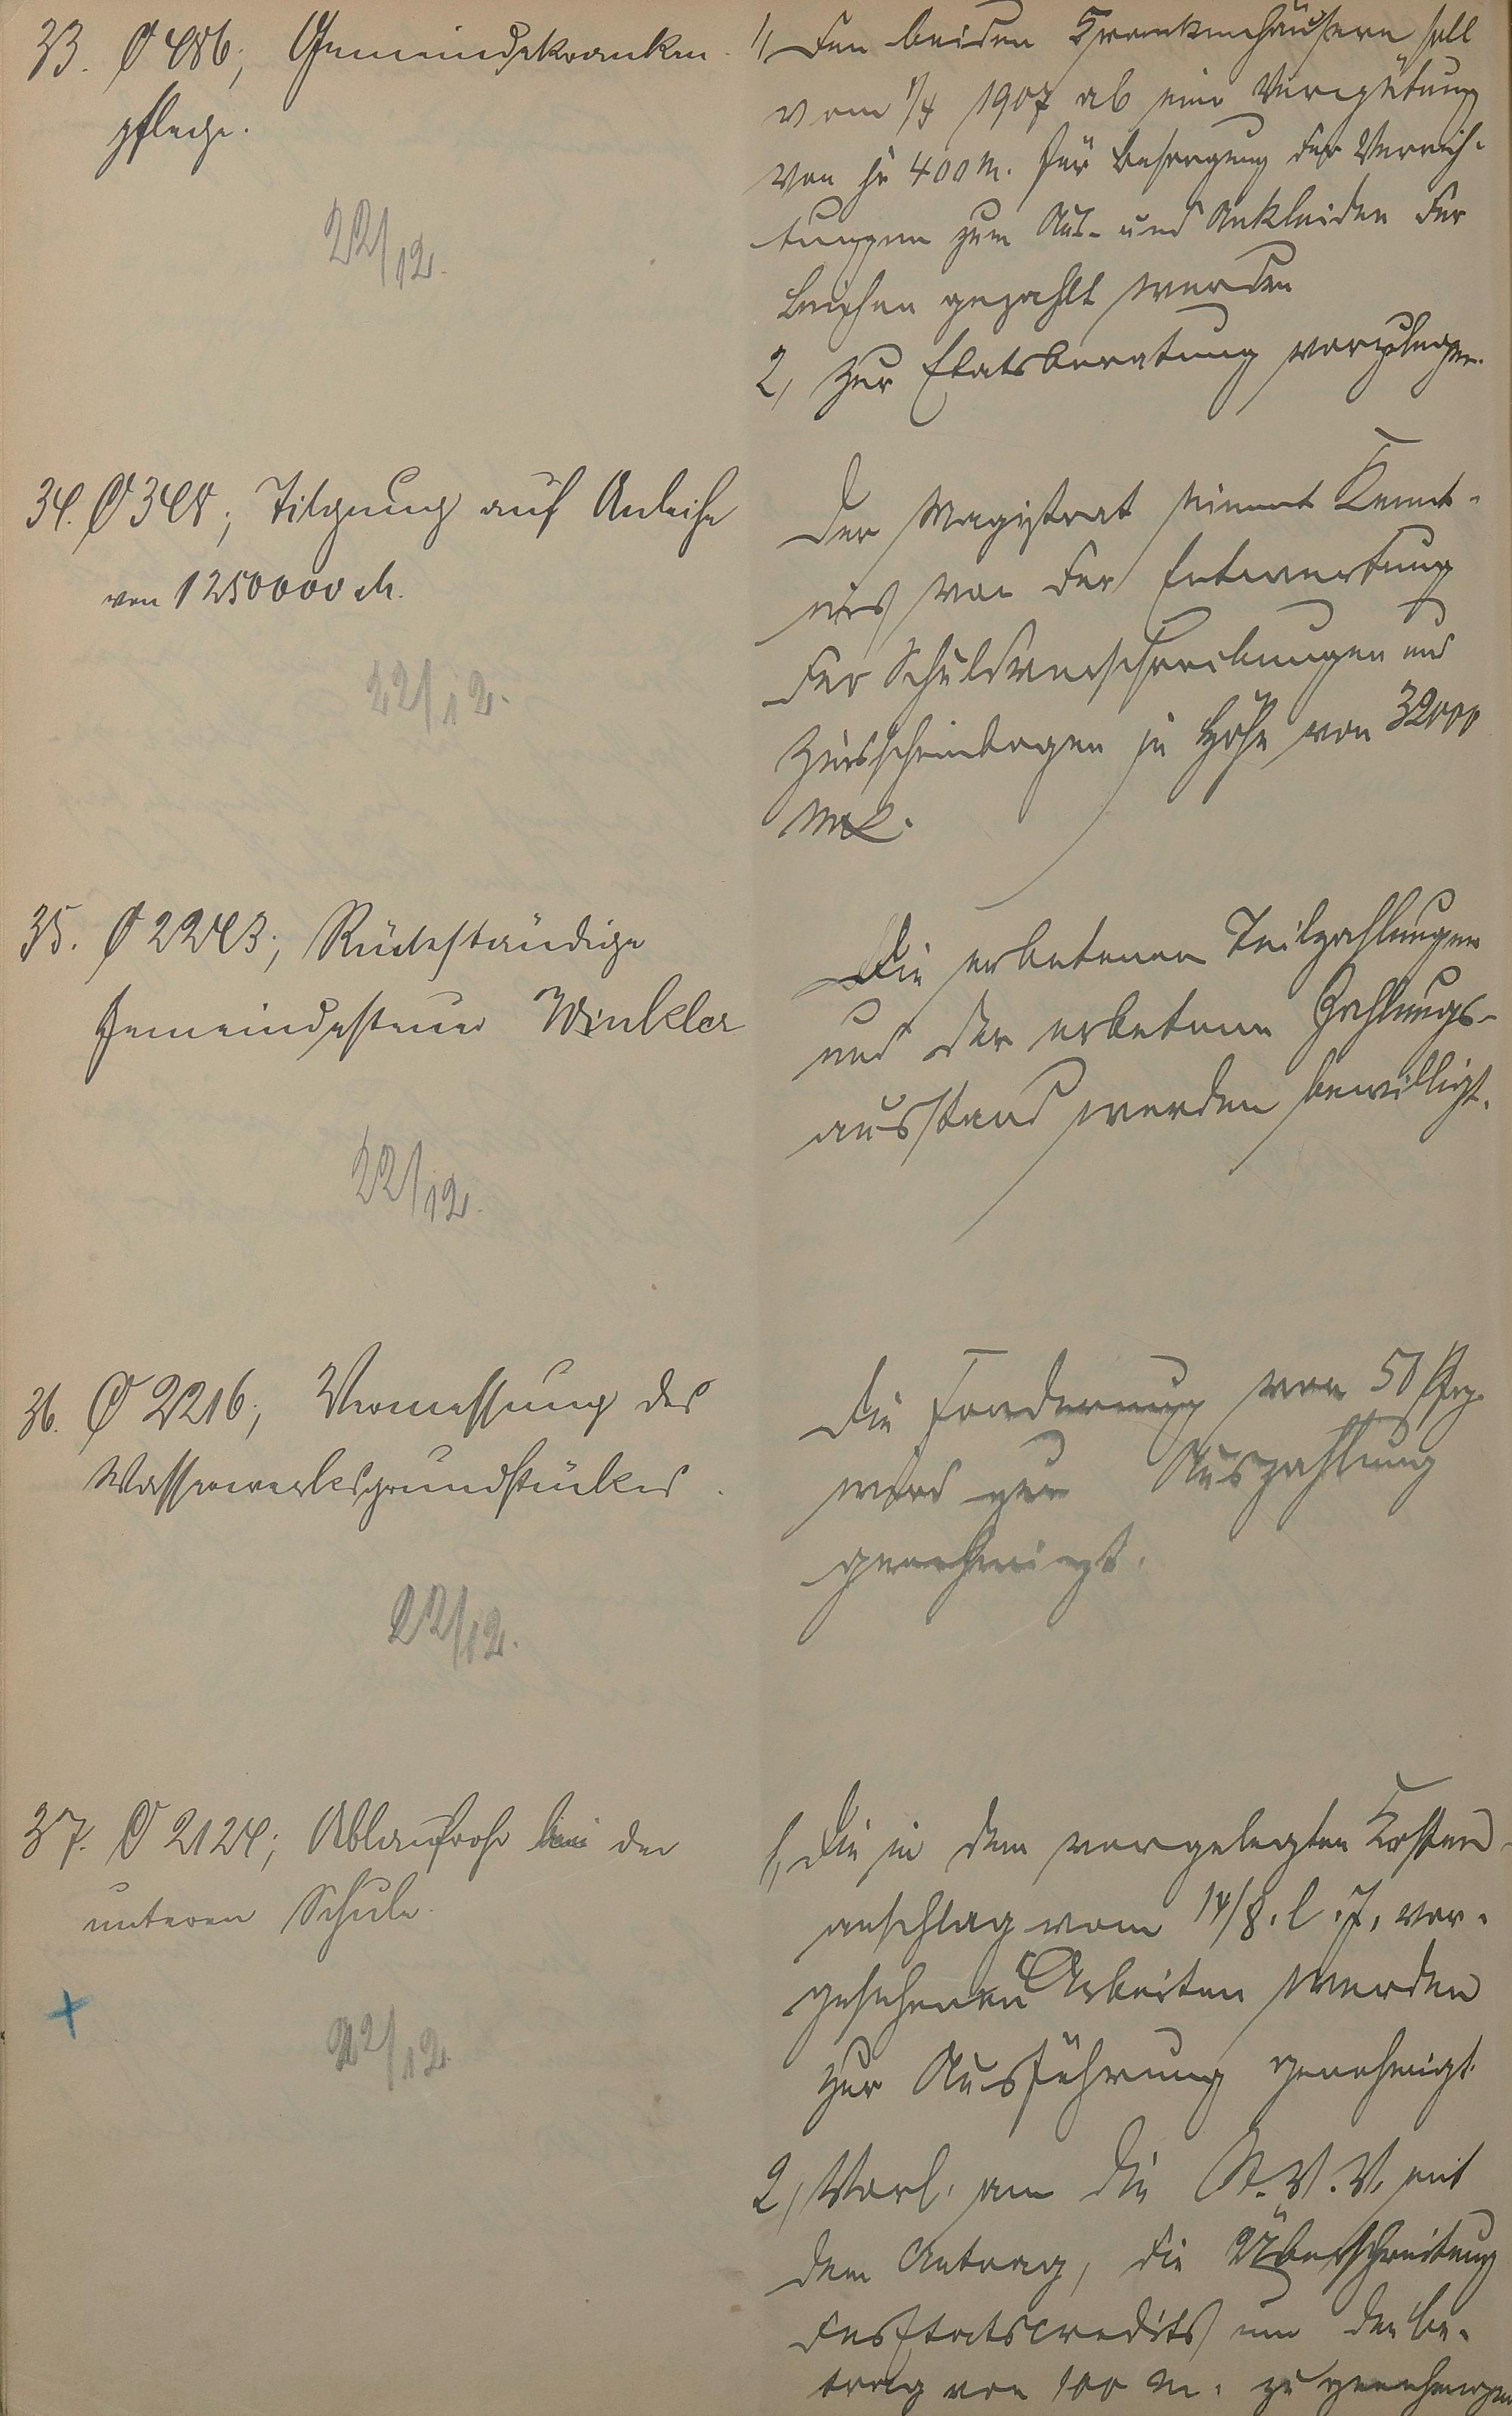 33. O 486; Gemeindekranken-
pflege.
22/12.
1, Den beiden Krankenhäusern soll
vom 1/4 1907 ab eine Vergütung
von je 400 M. für Besorgung der Verrich-
tungen zum Aus- und Ankleiden der
Leichen gezahlt werden
2, Zur Etatsberatung vorzulegen.
34. O 348; Tilgung auf Anleihe
von 1250000 M.
22/12.
Der Magistrat nimmt Kennt-
nis von der Entwertung
der Schuldverschreibungen und
Zinsscheinbogen in Höhe von 32000
Mk.
35. O 2243; Rückständige
Gemeindesteuer Winkler
22/12.
Die erbetenen Teilzahlungen
und der erbetene Zahlungs-
ausstand werden bewilligt.
36. O 2216; Vermessung des
Wasserwerksgrundstückes.
22/12.
Die Forderung von 50 Pfg.
wird zur Auszahlung
genehmigt.
37. O 2124; Ablaufrohr bei der
unteren Schule.
22/12.
1, Die in dem vorgelegten Kosten-
anschlag vom 14/8. l. J. vor-
gesehenen Arbeiten werden
zur Ausführung genehmigt.
2, Vorl. an die St. V. V. mit
dem Antrag, die Überschreitung
des Etatscredits um den Be-
trag von 100 M. zu genehmigen